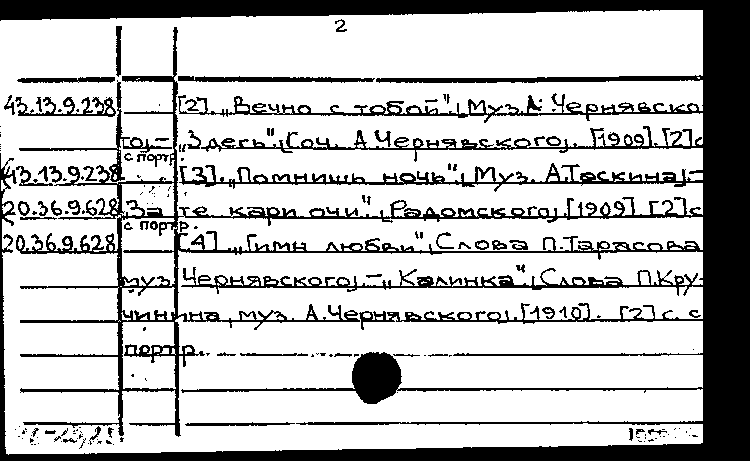 2
43.13.9.238 [2]. „Вечно с тобой". [Муз. А. Чернявско
го]. – „Здесь". [Соч. А. Чернявского]. [1909]. [2] с
с портр.
43.13.9.238 [3]. „Помнишь ночь". [Муз. А. Таскина]. –
20.36.9.628 „За те кари очи". [Радомского]. [1909]. [2] с
с портр.
20.36.9.628 [4]. „Гимн любви". [Слова П. Тарасова
муз. Чернявского]. – „Калинка". [Слова П. Кру-
чинина, муз. А. Чернявского]. [1910]. [2] с. с
портр.